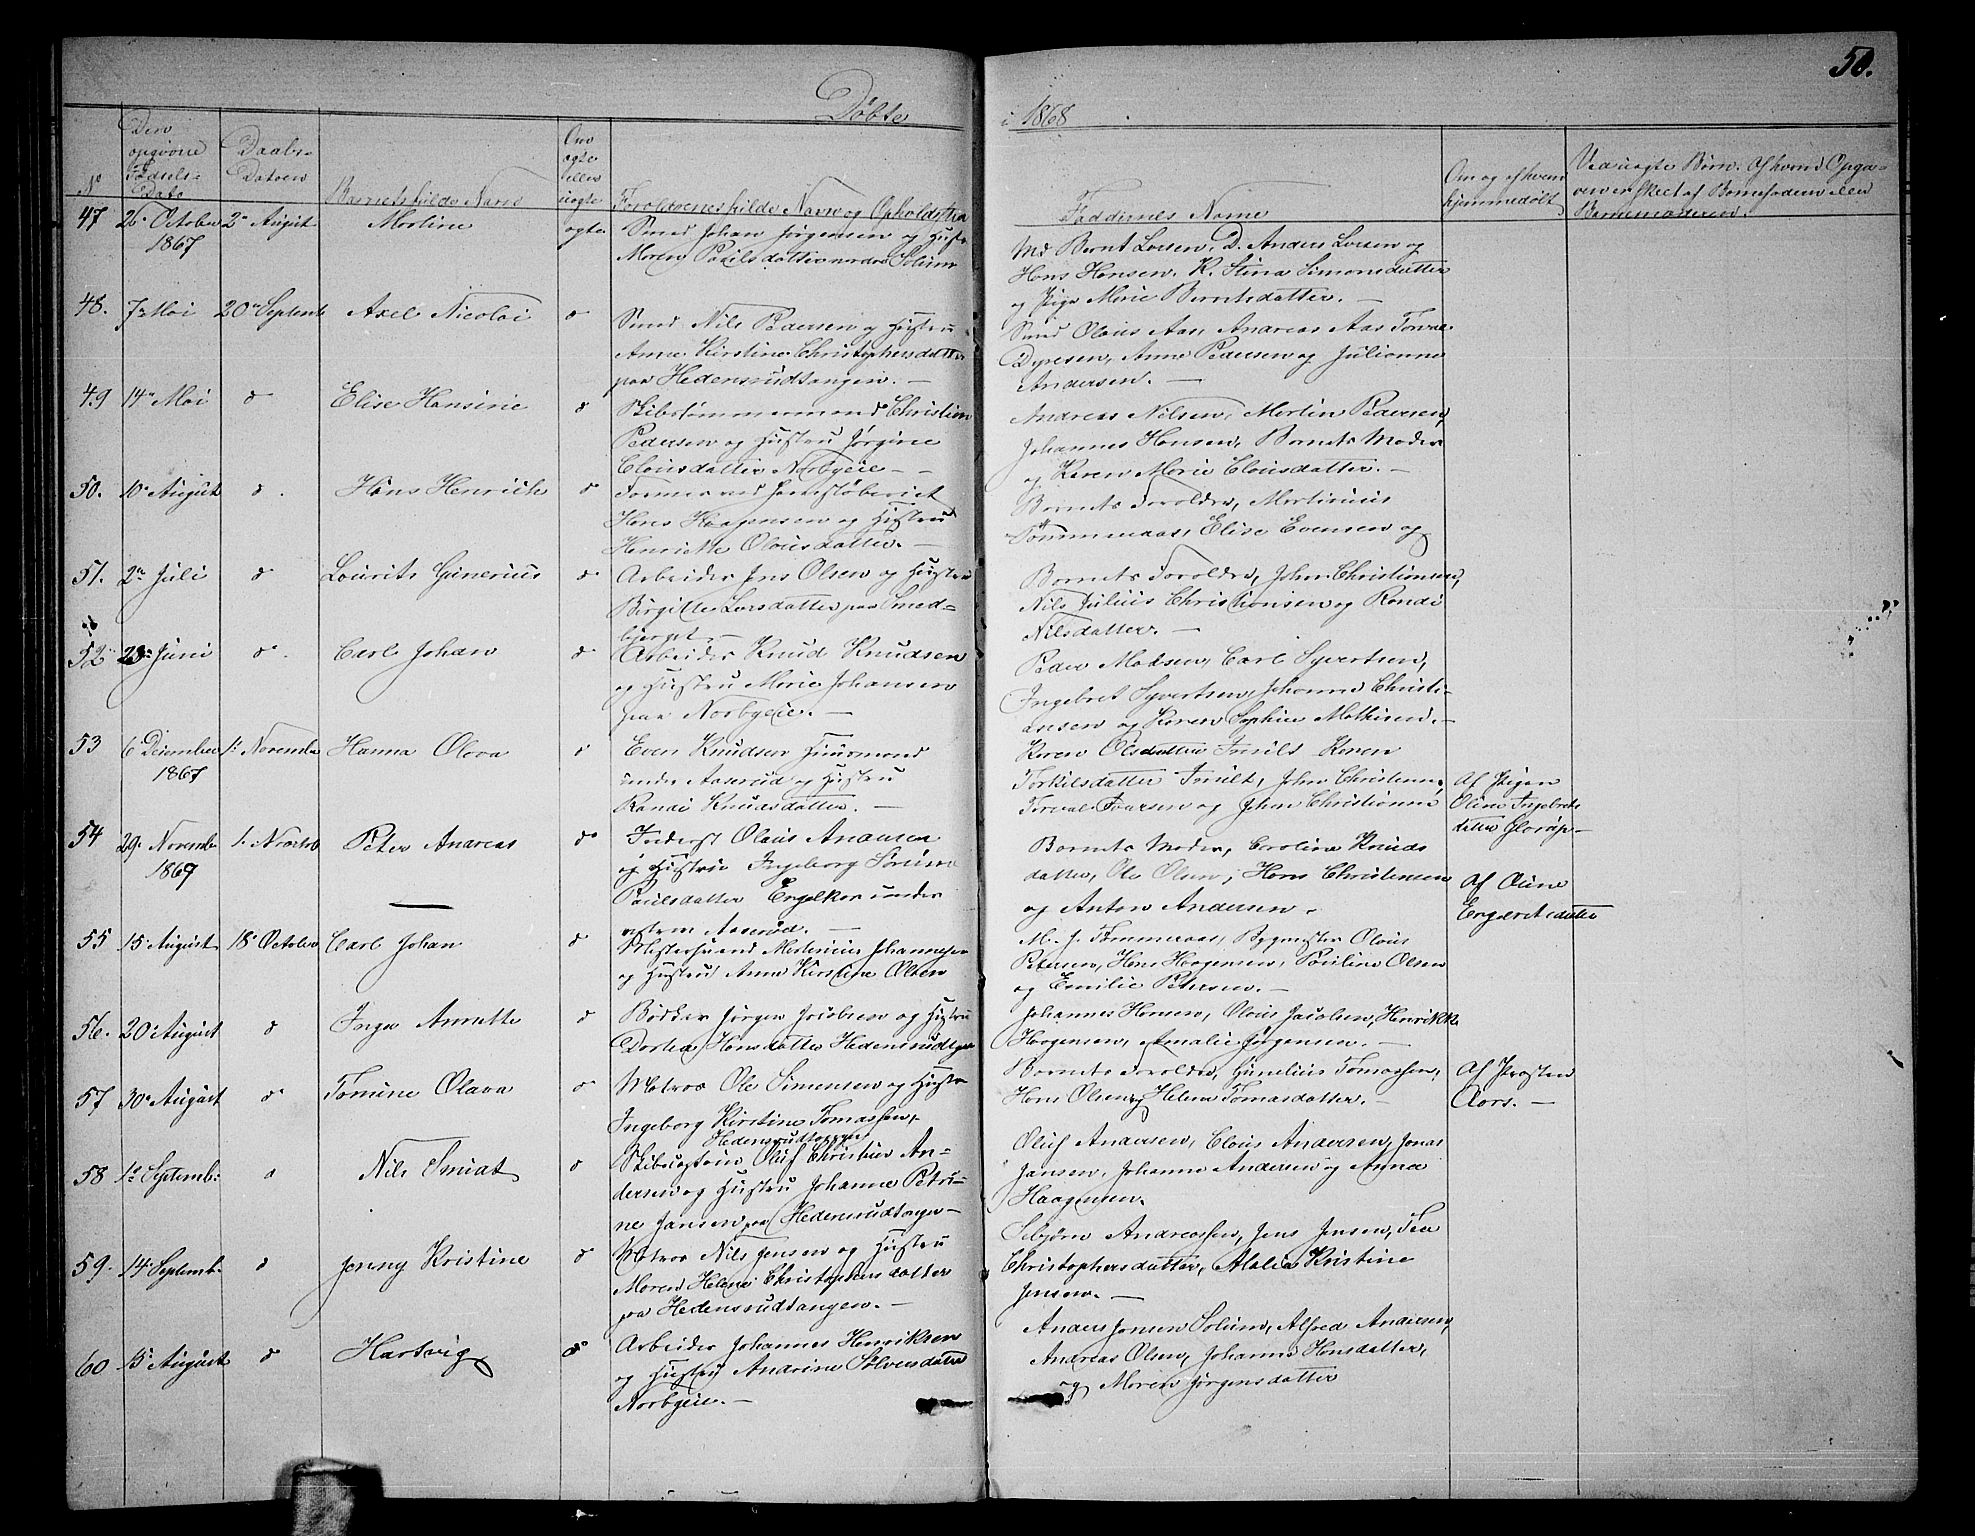 50.
Døbte
i 1868
No
Den opgivne Fødsels-Dato
Daabs-Datoen
Barnets fulde Navn
Om ægte eller uægte
Forældrenes fulde Navne og Opholdsted
Faddernes Navne
Om og af hvem hjemmedøbt
Ved uægte Børn: Af hvem Opgaven er skeet af Barnefaderen eller Barnemoderen.
47 26 October 1867 2 August Martine ægte
Smed Johan Jørgensen og Hustr
Maren Paulsdatter nordre Solum
Md Bernt Larsen, D. Anders Larsen og
Hans Hansen, K. Stina Simonsdatter
og Pige Marie Berntsdatter. —
48. 7 Mai 20 Septemb Axel Nicolai do
Smed Nils Pedersen og Hustru
Anne Kirstine Christophersdatter
paa Hedensrudtangen. —
Smed Olaus Aas, Andreas Aas Torval
Dyresen, Anne Pedersen og Julianne
Andersen. —
49 14 Mai do Elise Hansine do
Skibstømmermand Christian
Pedersen og Hustru Jørgine
Clausdatter Norbyeie —
Andreas Nilsen, Martin Pedersen,
Johannes Hansen, Barnets Moder
og Karen Marie Clausdatter. —
50. 10 August do. Hans Henrich do
Former ved Jernstøberiet
Hans Haagensen og Hustru
Henriette Olausdatter. —
Barnets Forældre, Martinius
Tømmeraas, Elise Evensen og
51. 2 Juli do Laurits Gunerius do
Arbeider Jens Olsen og Hustru
Birgitte Larsdatter paa Smed-
bjerget. —
Barnets Forældre, John Christiansen,
Nils Julius Christiansen og Randi
Nilsdatter. —
52 23 Juni do. Carl Johan do
Arbeider Knud Knudsen
og Hustru Marie Johansen
paa Norbyeie. —
Peder Madsen, Carl Syvertsen,
Ingebret Syvertsen, Johanne Christi-
ansen og Karen Sophie Mathisen. —
53 6 December 1867 1 Novembe Hanna Olava do
Even Knudsen Huusmand
under Aaserud og Hustru
Randi Knudsdatter. —
Karen Olsdatter Karen
Torkilsdatter John Christensen,
Torval Iversen og John Christianne
Af Pigen
Oline Ingebrets
datter
54 29 Novembe 1867 1. Novemb Peter Andreas do
Inderst Olaus Anansen
og Hustru Ingeborg
Paulsdatter Engelker under
vestern Aaserud. —
Barnets Moder, Caroline Knuds
datter, Ole Olsen, Hans Christensen
og Anton Andersen.
Af Oline
Engebretsdatter
55 15 August 18 October Carl Johan do
Mestersvend Martinius Johannesen
og Hustru Anne Kirstine Olsen
M. J. Tømmeraas, Bygmester Olaus
Petersen, Hans Haagensen, Pauline Olsen
og Emilie Petersen. —
56. 20 August do Inga Annette do
Bødker Jørgen Jacobsen og Hustru
Dortea Hansdatter Hedensrudtgn
Johannes Hansen, Olaus Jacobsen, Henrikke
Haagensen, Amalie Jørgensen. —
57 30 August do Tomine Olava do
Matros Ole Simensen og Hustr
Ingeborg Kirstine Tomassen,
Hedensrudtangen
Barnets Forældre, Gunelius Tomassen,
Hans Olsen og Helene Tomasdatter. —
Af Præsten
Aars. —
58 1 Septemb: do Nils Smidt do
Skibscaptein Oluf Christian An-
dersen og Hustru Johanne Petri-
ne Jansen paa Hedensrudtangn —
Oluf Andersen, Claus Andersen, Jonas
Jansen, Johanne Andersen og Anna
Haagensen.
59 14 Septemb. do Jenny Kristine do
Matros Nils Jensen og Hustru
Maren Helene Christophersdatter
paa Hedensrudtangen. —
Sebjørn Andreassen, Jens Jensen, Tea
Christophersdatter, Malia Kristine
Jensen. —
60 15 August do Hartvig do
Arbeider Johannes Henriksen
og Hustru Andrine Sølvesdatter
Norbyeie. —
Anders Jonsen Solum, Alfred Andersen,
Andreas Olsen, Johanne Hansdatter,
og Maren Jørgensdatter